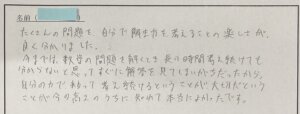 名前(
たくさんの問題を、自分で解き出す考えることの楽しさが、
良く分かりました。
今までは、数学の問題を解くとき長い時間考え続けても
分からないと思ってすぐに解答を見てしまいがちだったから、
自分の力で粘って考え続けるということが大切だという
ことが今の高2のうちに知れて本当によかったです。